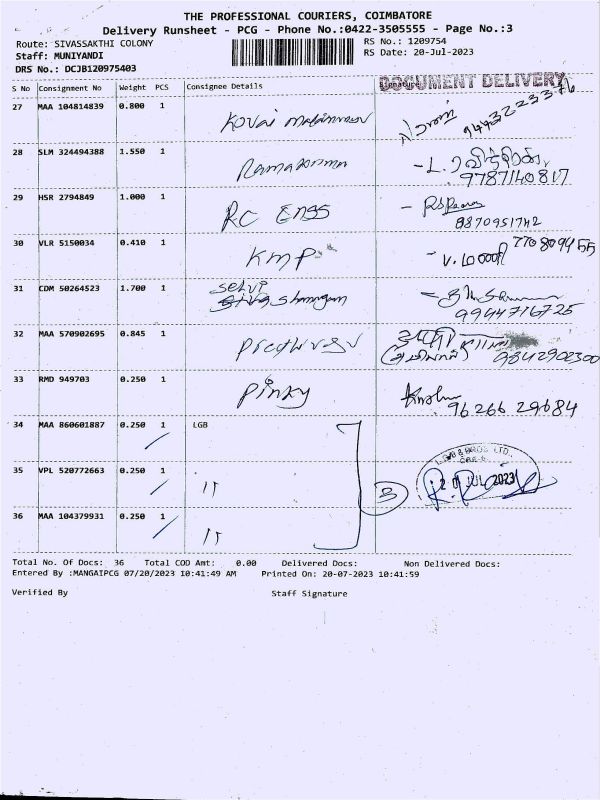 THE PROFESSIONAL COURIERS, COIMBATORE
Delivery Runsheet - PCG - Phone No.:0422-3505555 - Page No.:3
Route: SIVASSAKTHI COLONY RS No.: 1209754
Staff: MUNIYANDI RS Date: 20-Jul-2023
DRS No.: DCJB120975403
S No Consignment No Weight PCS Consignee Details DOCUMENT DELIVERY
27 MAA 104814839 0.800 1 Kovai 9443223376
28 SLM 324494388 1.550 1 9787140817
29 HSR 2794849 1.000 1 RC Engs 8870951742
30 VLR 5150034 0.410 1 KMP 7708094455
31 CDM 50264523 1.700 1 Selvi Shanmugam 9944716725
32 MAA 570902695 0.845 1 9842902300
33 RMD 949703 0.250 1 Pinky 96266 29684
34 MAA 860601887 0.250 1 LGB
35 VPL 520772663 0.250 1 '' 3 20 JUL 2023
36 MAA 104379931 0.250 1 ''
Total No. Of Docs: 36 Total COD Amt: 0.00 Delivered Docs: Non Delivered Docs:
Entered By :MANGAIPCG 07/20/2023 10:41:49 AM Printed On: 20-07-2023 10:41:59
Verified By Staff Signature